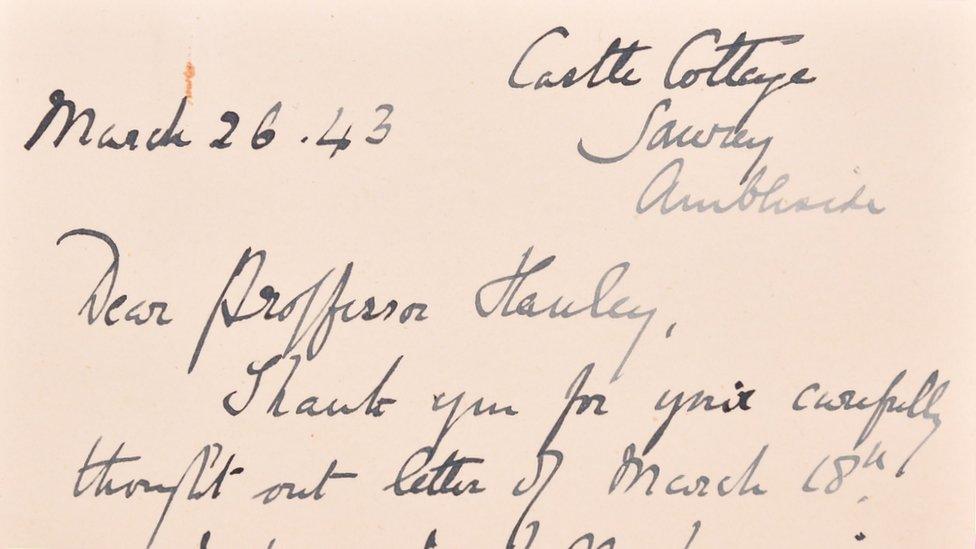 Castle Cottage
March 26.43
Sawrey
Ambleside
Dear Proffessor Hanley,
Thank you for your carefully
thought out letter of March 18th.